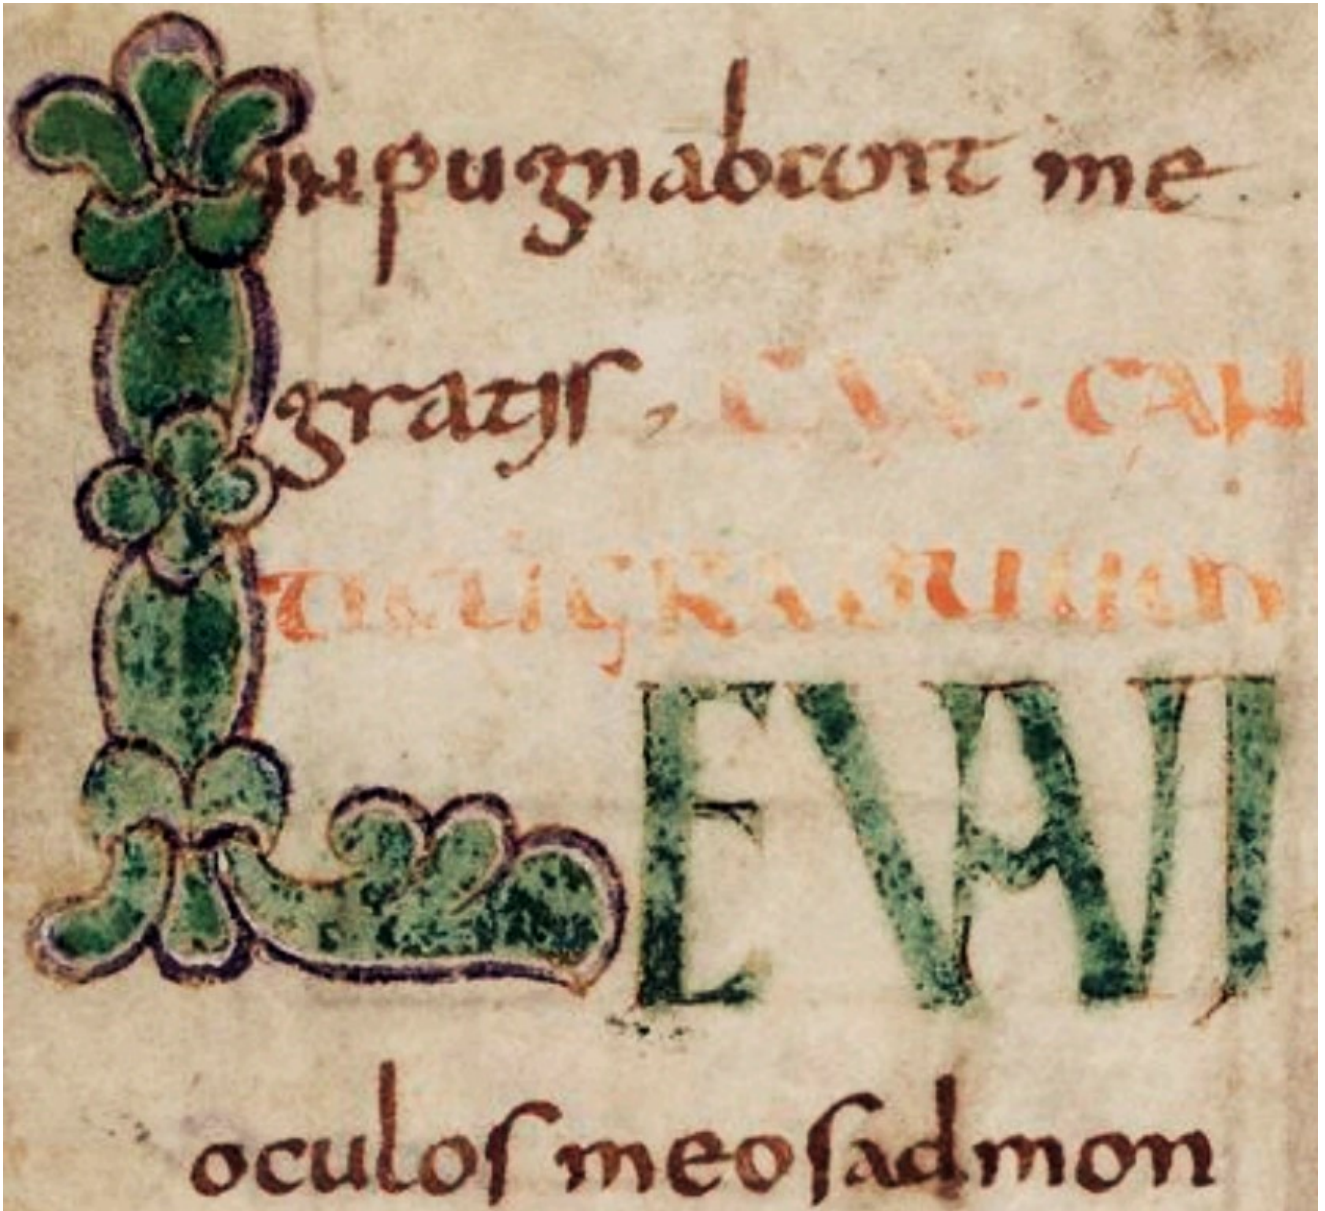 inpugnabant me
gratis, CXX · CAN
GRADUUM
LEVAVI
oculos meos ad mon